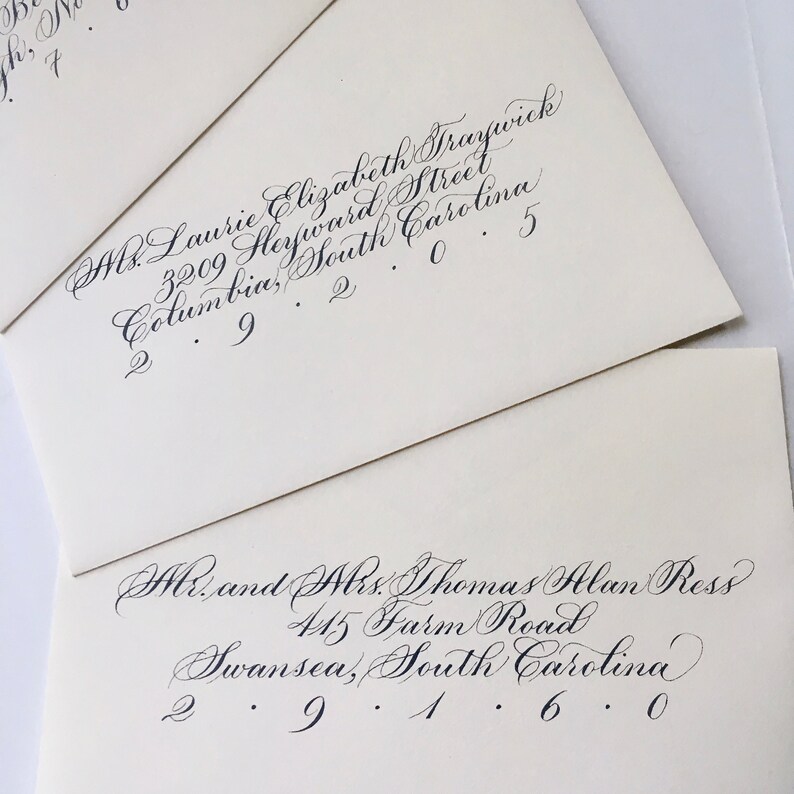 7 · 6
Ms. Laurie Elizabeth Traywick
3209 Heyward Street
Columbia, South Carolina
2 · 9 · 2 · 0 · 5
Mr. and Mrs. Thomas Alan Ress
415 Farm Road
Swansea, South Carolina
2 · 9 · 1 · 6 · 0